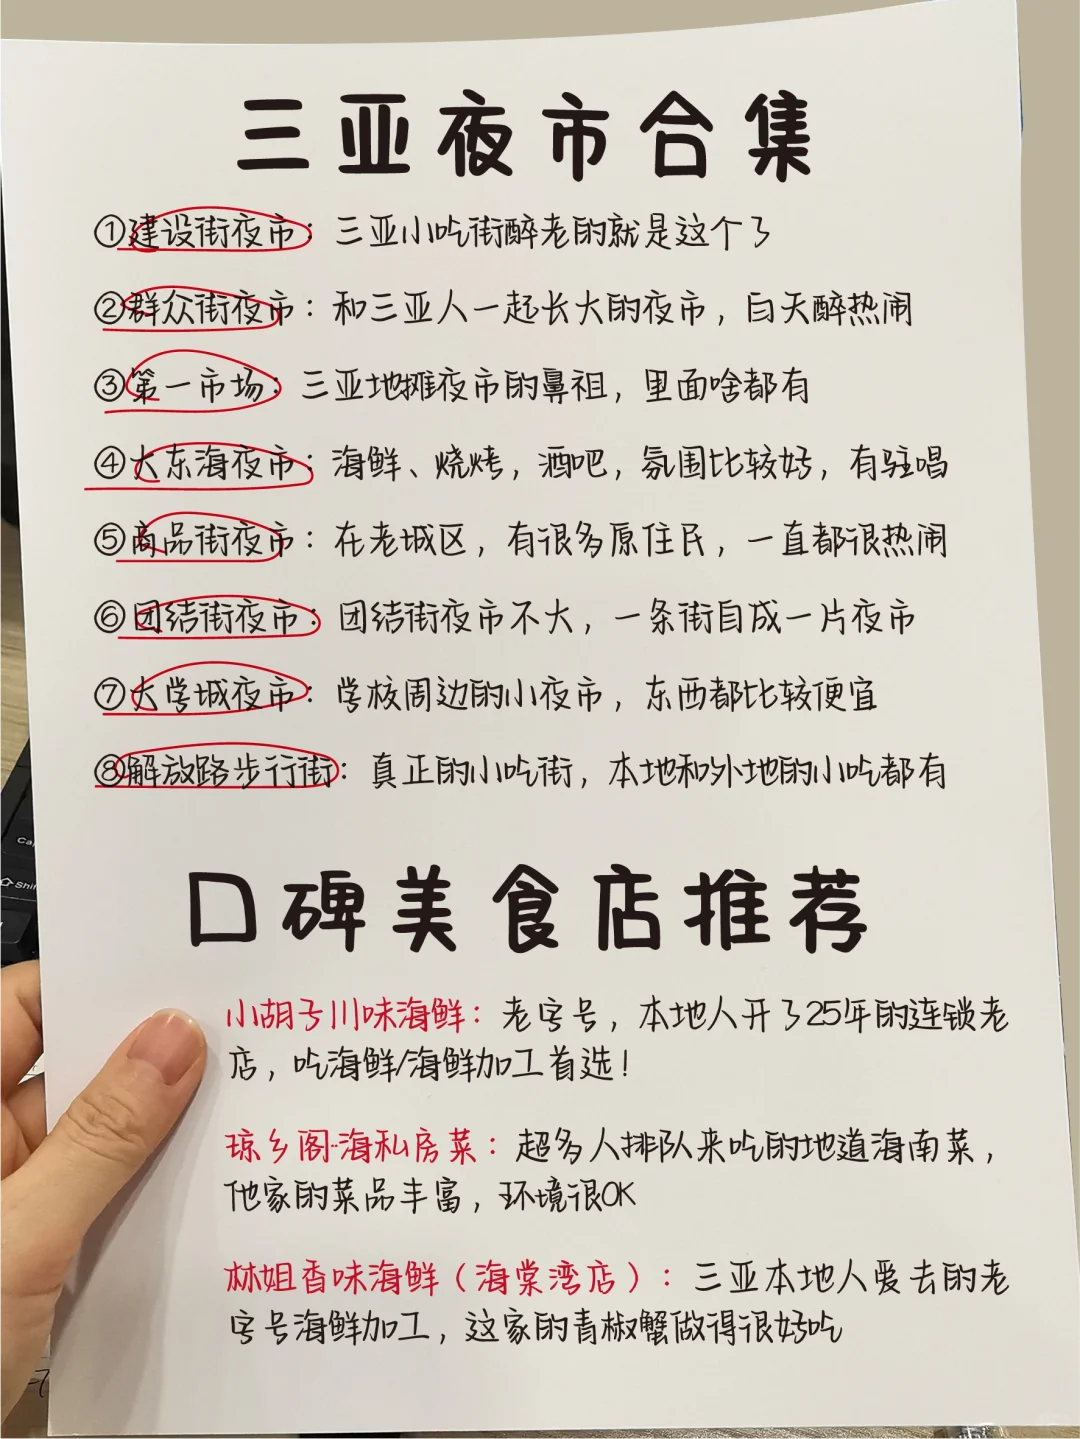 三亚夜市合集
①建设街夜市：三亚小吃街醉老的就是这个了
②群众街夜市：和三亚人一起长大的夜市，白天醉热闹
③第一市场：三亚地摊夜市的鼻祖，里面啥都有
④大东海夜市：海鲜、烧烤，酒吧，氛围比较好，有驻唱
⑤商品街夜市：在老城区，有很多原住民，一直都很热闹
⑥团结街夜市：团结街夜市不大，一条街自成一片夜市
⑦大学城夜市：学校周边的小夜市，东西都比较便宜
⑧解放路步行街：真正的小吃街，本地和外地的小吃都有
口碑美食店推荐
小胡子川味海鲜：老字号，本地人开了25年的连锁老
店，吃海鲜/海鲜加工首选！
琼乡阁·海私房菜：超多人排队来吃的地道海南菜，
他家的菜品丰富，环境很OK
林姐香味海鲜（海棠湾店）：三亚本地人爱去的老
字号海鲜加工，这家的青椒蟹做得很好吃